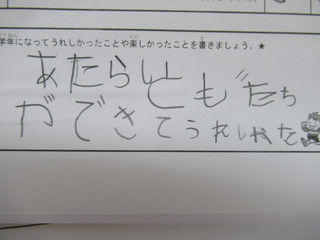 学年になってうれしかったことや楽しかったことを書きましょう。★
あたらしいともだち
ができてうれしかた